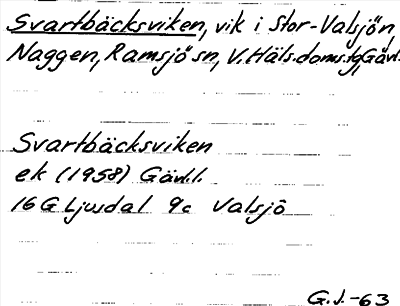 Svartbäcksviken, vik i Stor-Valsjön,
Naggen, Ramsjö sn, V. Häls. doms.tg, Gävl.
Svartbäcksviken
ek (1958) Gävl.l.
16 G Ljusdal 9c Valsjö
G.J.-63